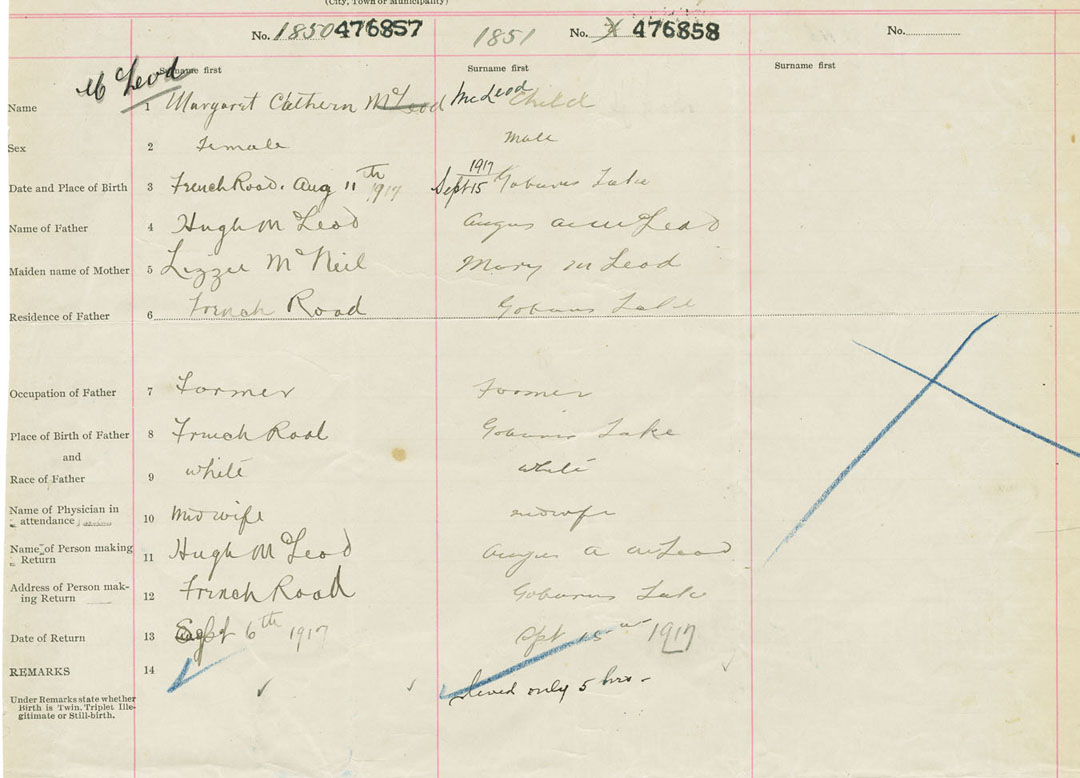 (City, Town or Municipality)
No. 1850 476857
1851 No. 476858
No.
McLeod
Surname first
Surname first
Surname first
Name 1 Margaret Cathern McLeod McLeod Child
Sex 2 Female Male
Date and Place of Birth 3 French Road. Aug 11th 1917 Sept 15 1917 Gabarus Lake
Name of Father 4 Hugh McLeod Angus A McLeod
Maiden name of Mother 5 Lizzie McNeil Mary McLeod
Residence of Father 6 French Road Gabarus Lake
Occupation of Father 7 Farmer Farmer
Place of Birth of Father 8 French Road Gabarus Lake
and
Race of Father 9 white white
Name of Physician in
attendance 10 Midwife midwife
Name of Person making
Return 11 Hugh McLeod Angus A McLeod
Address of Person mak-
ing Return 12 French Road Gabarus Lake
Date of Return 13 Sept 6th 1917 Sept 15 1917
REMARKS 14
lived only 5 hrs -
Under Remarks state whether
Birth is Twin. Triplet Ille-
gitimate or Still-birth.